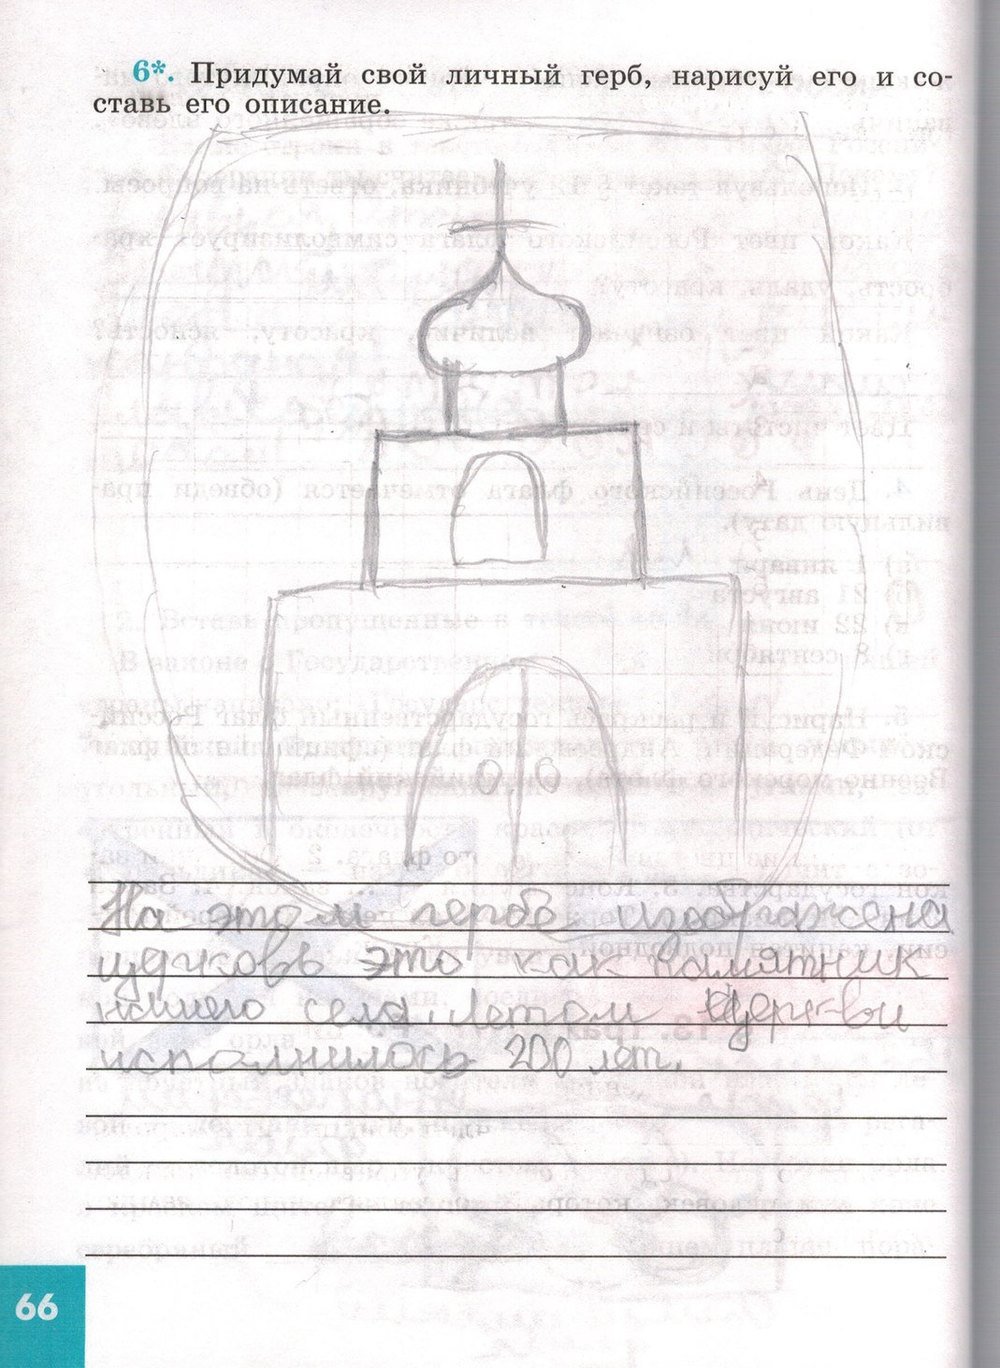 6*. Придумай свой личный герб, нарисуй его и со-
ставь его описание.
На этом гербе изображена
церковь это как памятник
нашего села. Летом церкви
исполнилось 200 лет.
66